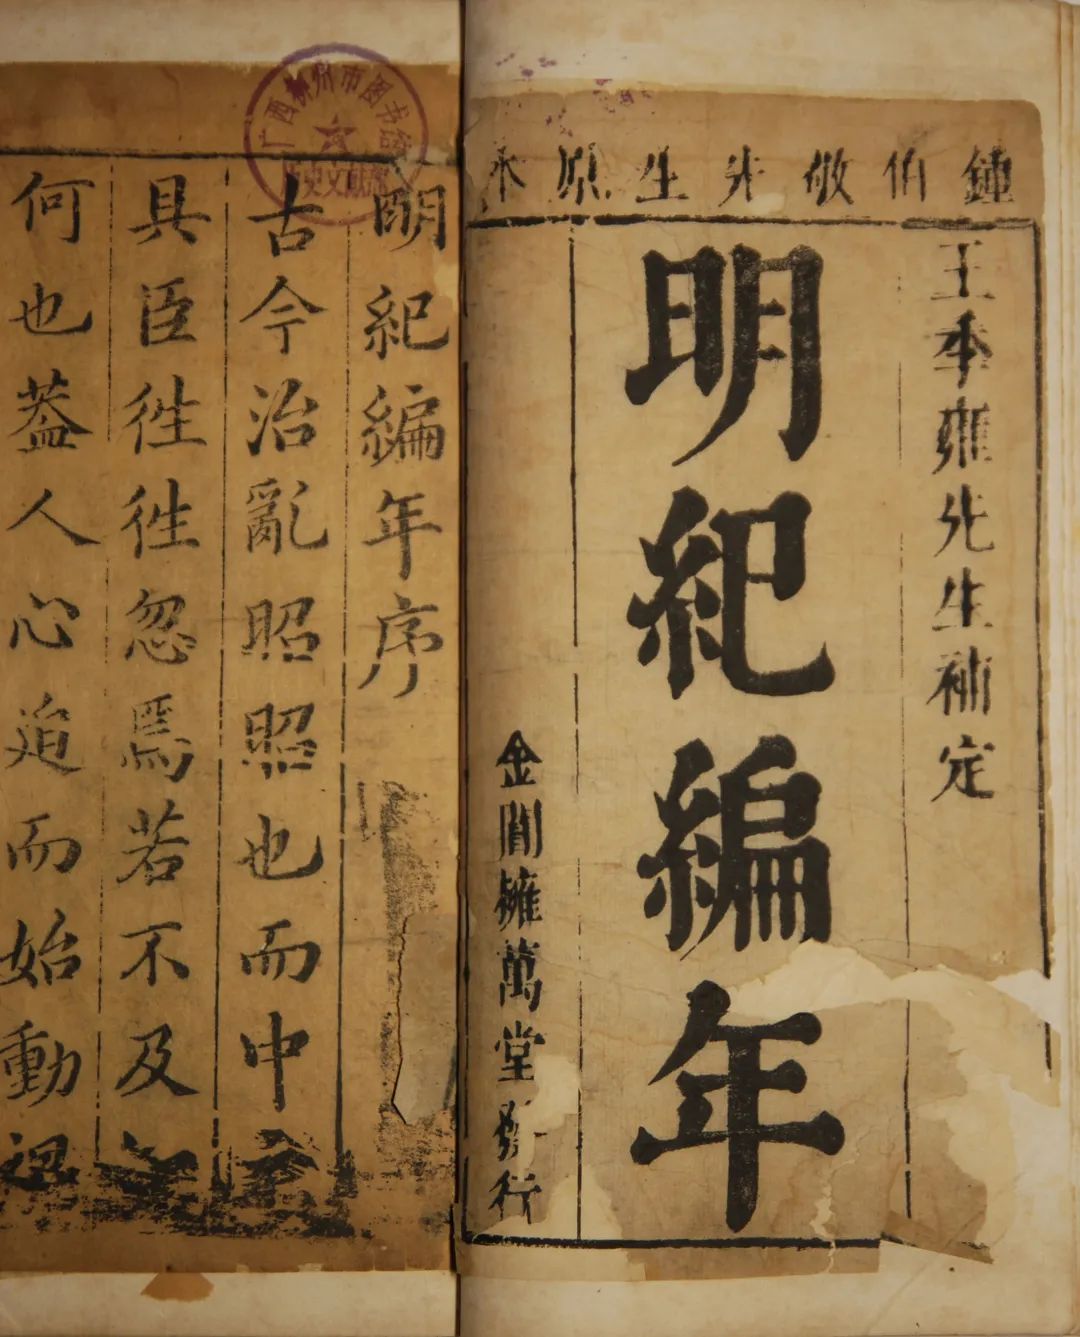 鍾伯敬先生原本
王季雍先生補定
明紀編年
金閶擁萬堂發行
明紀編年序
古今治亂昭昭也而中
具臣徃徃忽焉若不及
何也蓋人心迨而始動
广西柳州市图书馆
历史文献部